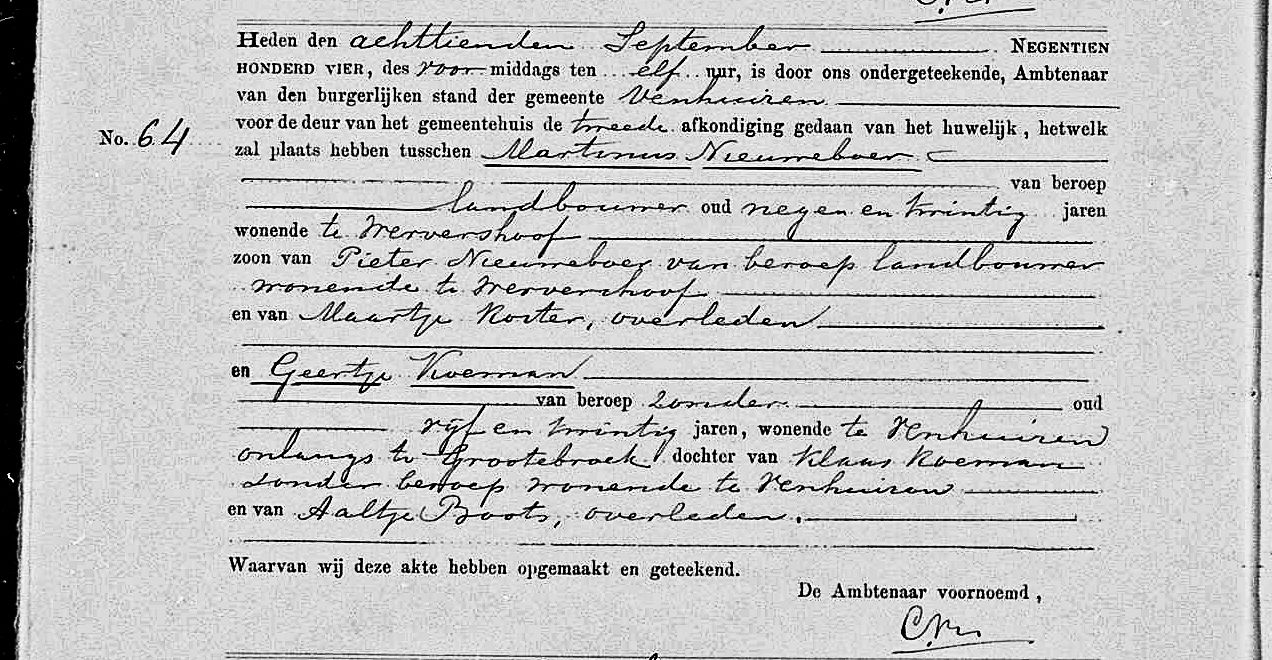 Heden den achttienden September NEGENTIEN
HONDERD VIER, des voor middags ten elf uur, is door ons ondergeteekende, Ambtenaar
van den burgerlijken stand der gemeente Venhuizen
No. 64 voor de deur van het gemeentehuis de tweede afkondiging gedaan van het huwelijk, hetwelk
zal plaats hebben tusschen Martinus Nieuweboer
van beroep
landbouwer oud negen en twintig jaren
wonende te Wervershoof
zoon van Pieter Nieuweboer van beroep landbouwer
wonende te Wervershoof
en van Maartje Koster, overleden
en Geertje Koeman
van beroep zonder oud
vijf en twintig jaren, wonende te Venhuizen
onlangs te Grootebroek dochter van Klaas Koeman
zonder beroep wonende te Venhuizen
en van Aaltje Boots, overleden.
Waarvan wij deze akte hebben opgemaakt en geteekend.
De Ambtenaar voornoemd,